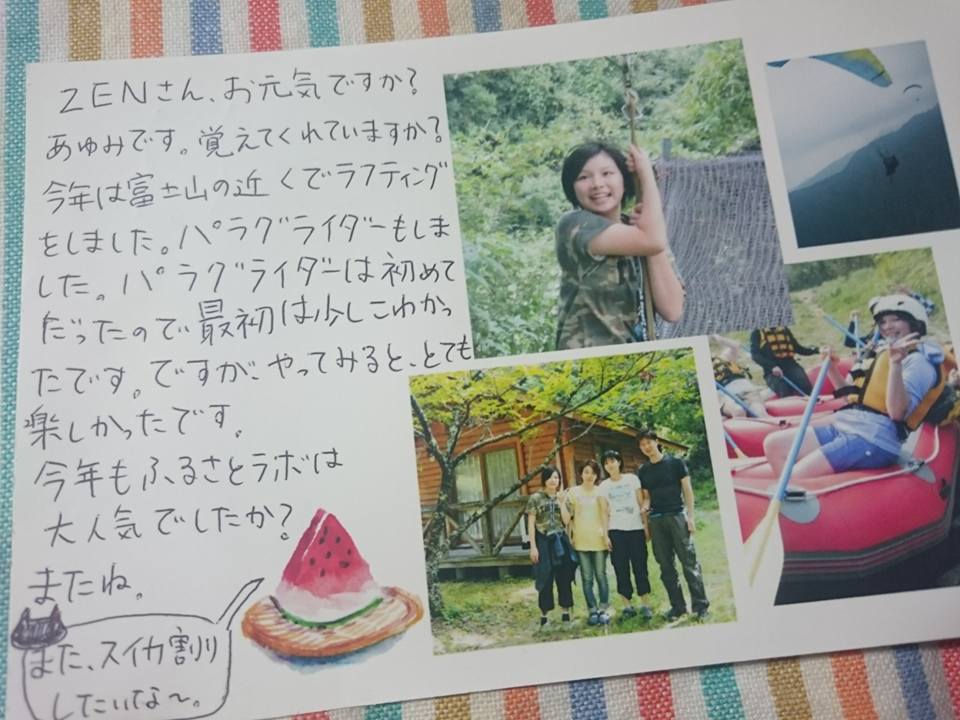 ZENさん、お元気ですか?
あゅみです。覚えてくれていますか?
今年は富士山の近くでラフティング
をしました。パラグライダーもしま
した。パラグライダーは初めて
だったので最初は少しこわかっ
たです。ですが、やってみると、とても
楽しかったです。
今年もふるさとラボは
大人気でしたか?
またね。
また、スイカ割り
したいな～。